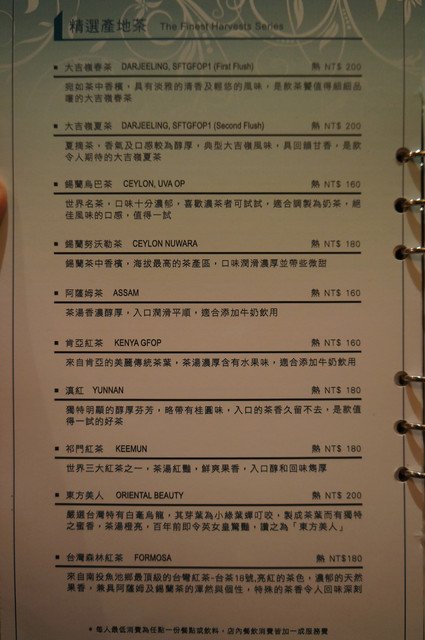 精選產地茶 The Finest Harvests Series
▪ 大吉嶺春茶 DARJEELING, SFTGFOP1 (First Flush) 熱 NT$ 200
宛如茶中香檳,具有淡雅的清香及輕悠的風味,是飲茶饕值得細細品
嚐的大吉嶺春茶
▪ 大吉嶺夏茶 DARJEELING, SFTGFOP1 (Second Flush) 熱 NT$ 200
夏摘茶,香氣及口感較為醇厚,典型大吉嶺風味,具回韻甘香,是款
令人期待的大吉嶺夏茶
▪ 錫蘭烏巴茶 CEYLON, UVA OP 熱 NT$ 160
世界名茶,口味十分濃郁,喜歡濃茶者可試試,適合調製為奶茶,絕
佳風味的口感,值得一試
▪ 錫蘭努沃勒茶 CEYLON NUWARA 熱 NT$ 180
錫蘭茶中香檳,海拔最高的茶產區,口味潤滑濃厚並帶些微甜
▪ 阿薩姆茶 ASSAM 熱 NT$ 160
茶湯香濃醇厚,入口潤滑平順,適合添加牛奶飲用
▪ 肯亞紅茶 KENYA GFOP 熱 NT$ 160
來自肯亞的美麗傳統茶葉,茶湯濃厚含有水果味,適合添加牛奶飲用
▪ 滇紅 YUNNAN 熱 NT$ 180
獨特明顯的醇厚芬芳,略帶有桂圓味,入口的茶香久留不去,是款值
得一試的好茶
▪ 祁門紅茶 KEEMUN 熱 NT$ 180
世界三大紅茶之一,茶湯紅豔,鮮爽果香,入口醇和回味雋厚
▪ 東方美人 ORIENTAL BEAUTY 熱 NT$ 200
嚴選台灣特有白毫烏龍,其芽葉為小綠葉蟬叮咬,製成茶葉而有獨特
之蜜香,茶湯橙亮,百年前即令英女皇驚豔,讚之為「東方美人」
▪ 台灣森林紅茶 FORMOSA 熱 NT$180
來自南投魚池鄉最頂級的台灣紅茶-台茶18號,亮紅的茶色,濃郁的天然
果香,兼具阿薩姆及錫蘭茶的渾然與個性,特殊的茶香令人回味深刻
* 每人最低消費為任點一份餐點或飲料,店內餐飲消費皆加一成服務費